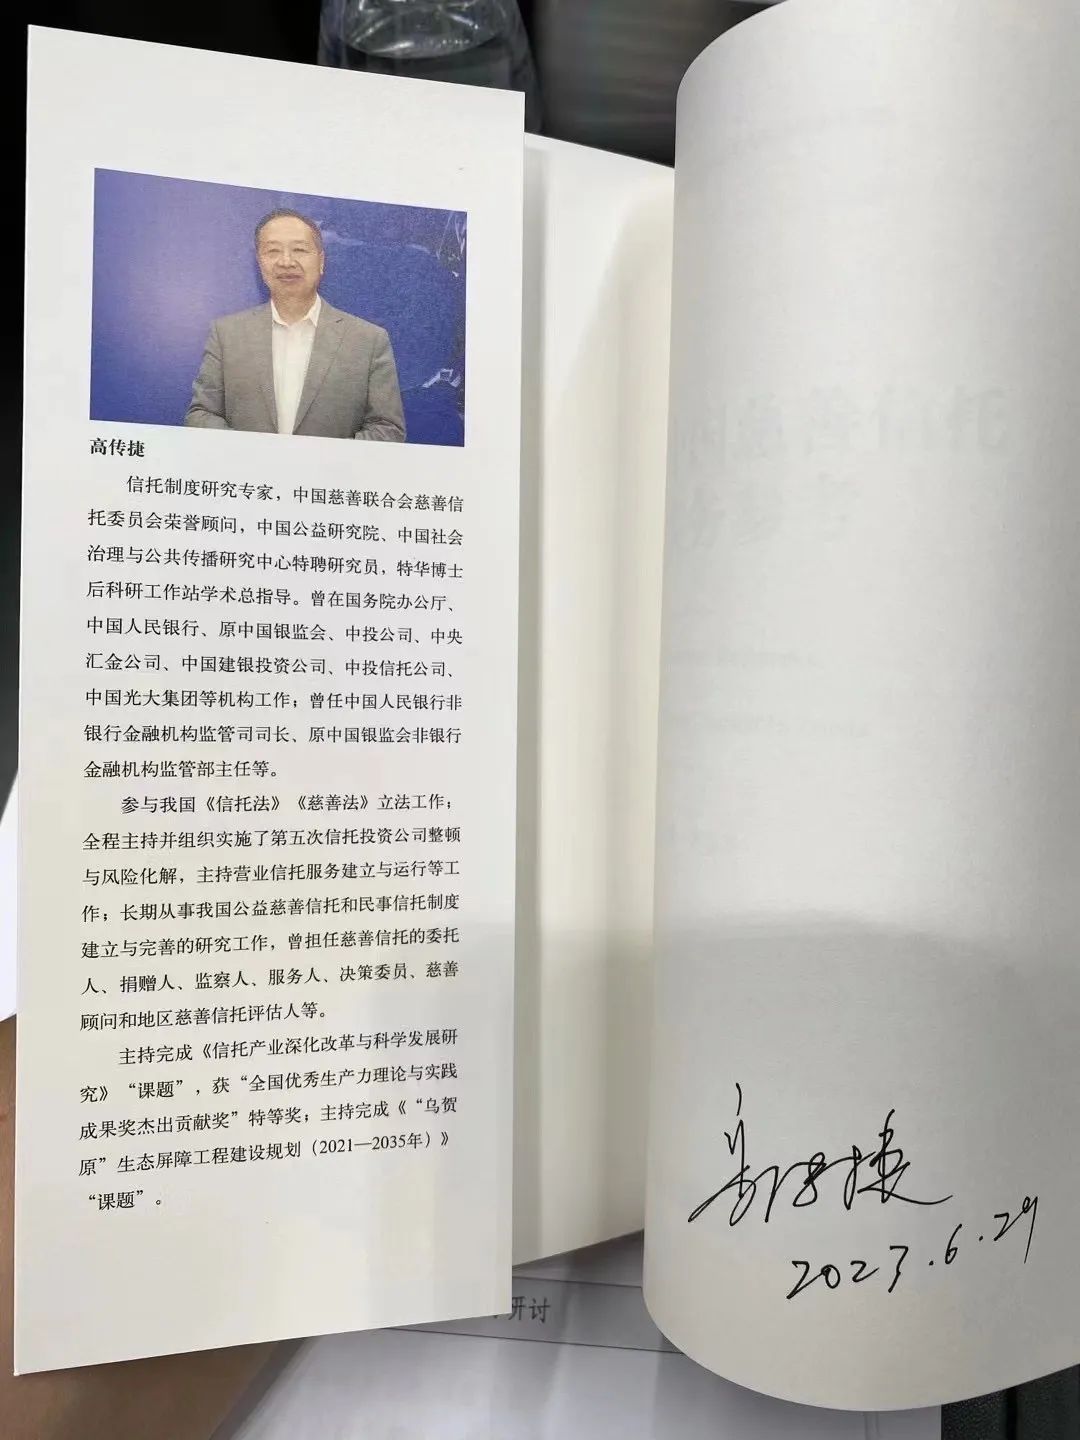 高传捷
信托制度研究专家，中国慈善联合会慈善信
托委员会荣誉顾问，中国公益研究院、中国社会
治理与公共传播研究中心特聘研究员，特华博士
后科研工作站学术总指导。曾在国务院办公厅、
中国人民银行、原中国银监会、中投公司、中央
汇金公司、中国建银投资公司、中投信托公司、
中国光大集团等机构工作；曾任中国人民银行非
银行金融机构监管司司长、原中国银监会非银行
金融机构监管部主任等。
参与我国《信托法》《慈善法》立法工作；
全程主持并组织实施了第五次信托投资公司整顿
与风险化解，主持营业信托服务建立与运行等工
作；长期从事我国公益慈善信托和民事信托制度
建立与完善的研究工作，曾担任慈善信托的委托
人、捐赠人、监察人、服务人、决策委员、慈善
顾问和地区慈善信托评估人等。
主持完成《信托产业深化改革与科学发展研
究》“课题”，获“全国优秀生产力理论与实践
成果奖杰出贡献奖”特等奖；主持完成《“乌贺
原”生态屏障工程建设规划（2021—2035年）》
“课题”。
高传捷
2023.6.29
研讨